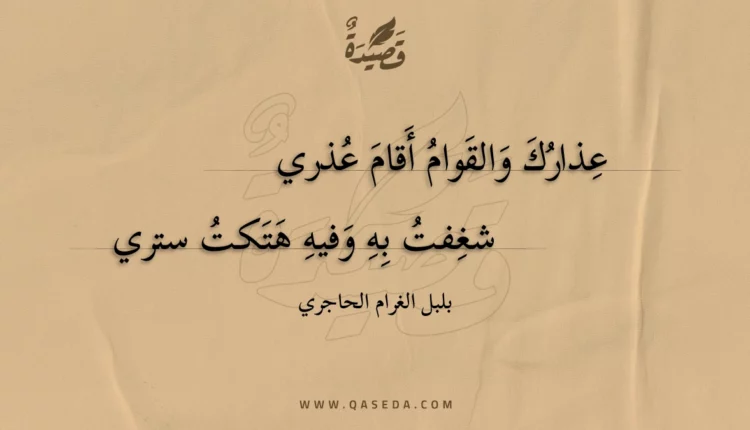 قَصِيدَةٌ
عِذارُكَ وَالقَوامُ أَقامَ عُذري
شغِفتُ بِهِ وَفيهِ هَتَكتُ ستري
بلبل الغرام الحاجري
WWW.QASEDA.COM